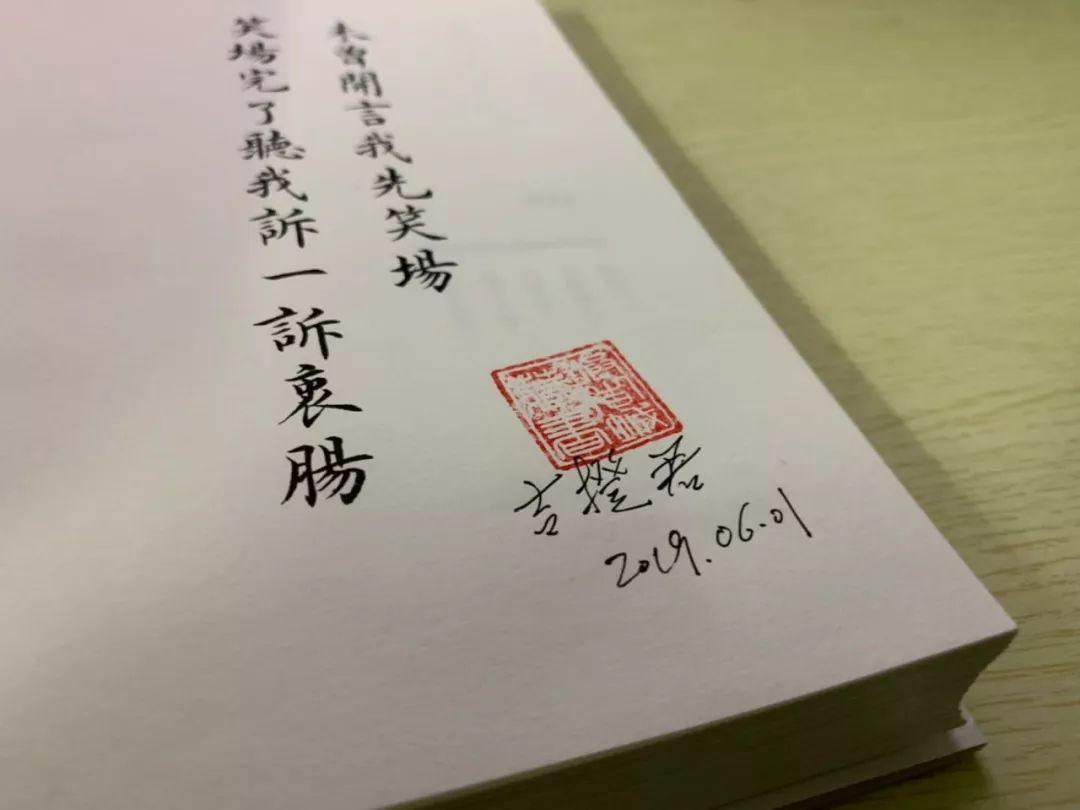 未曾開言我先笑場
笑場完了聽我訴一訴衷腸
2019.06.01